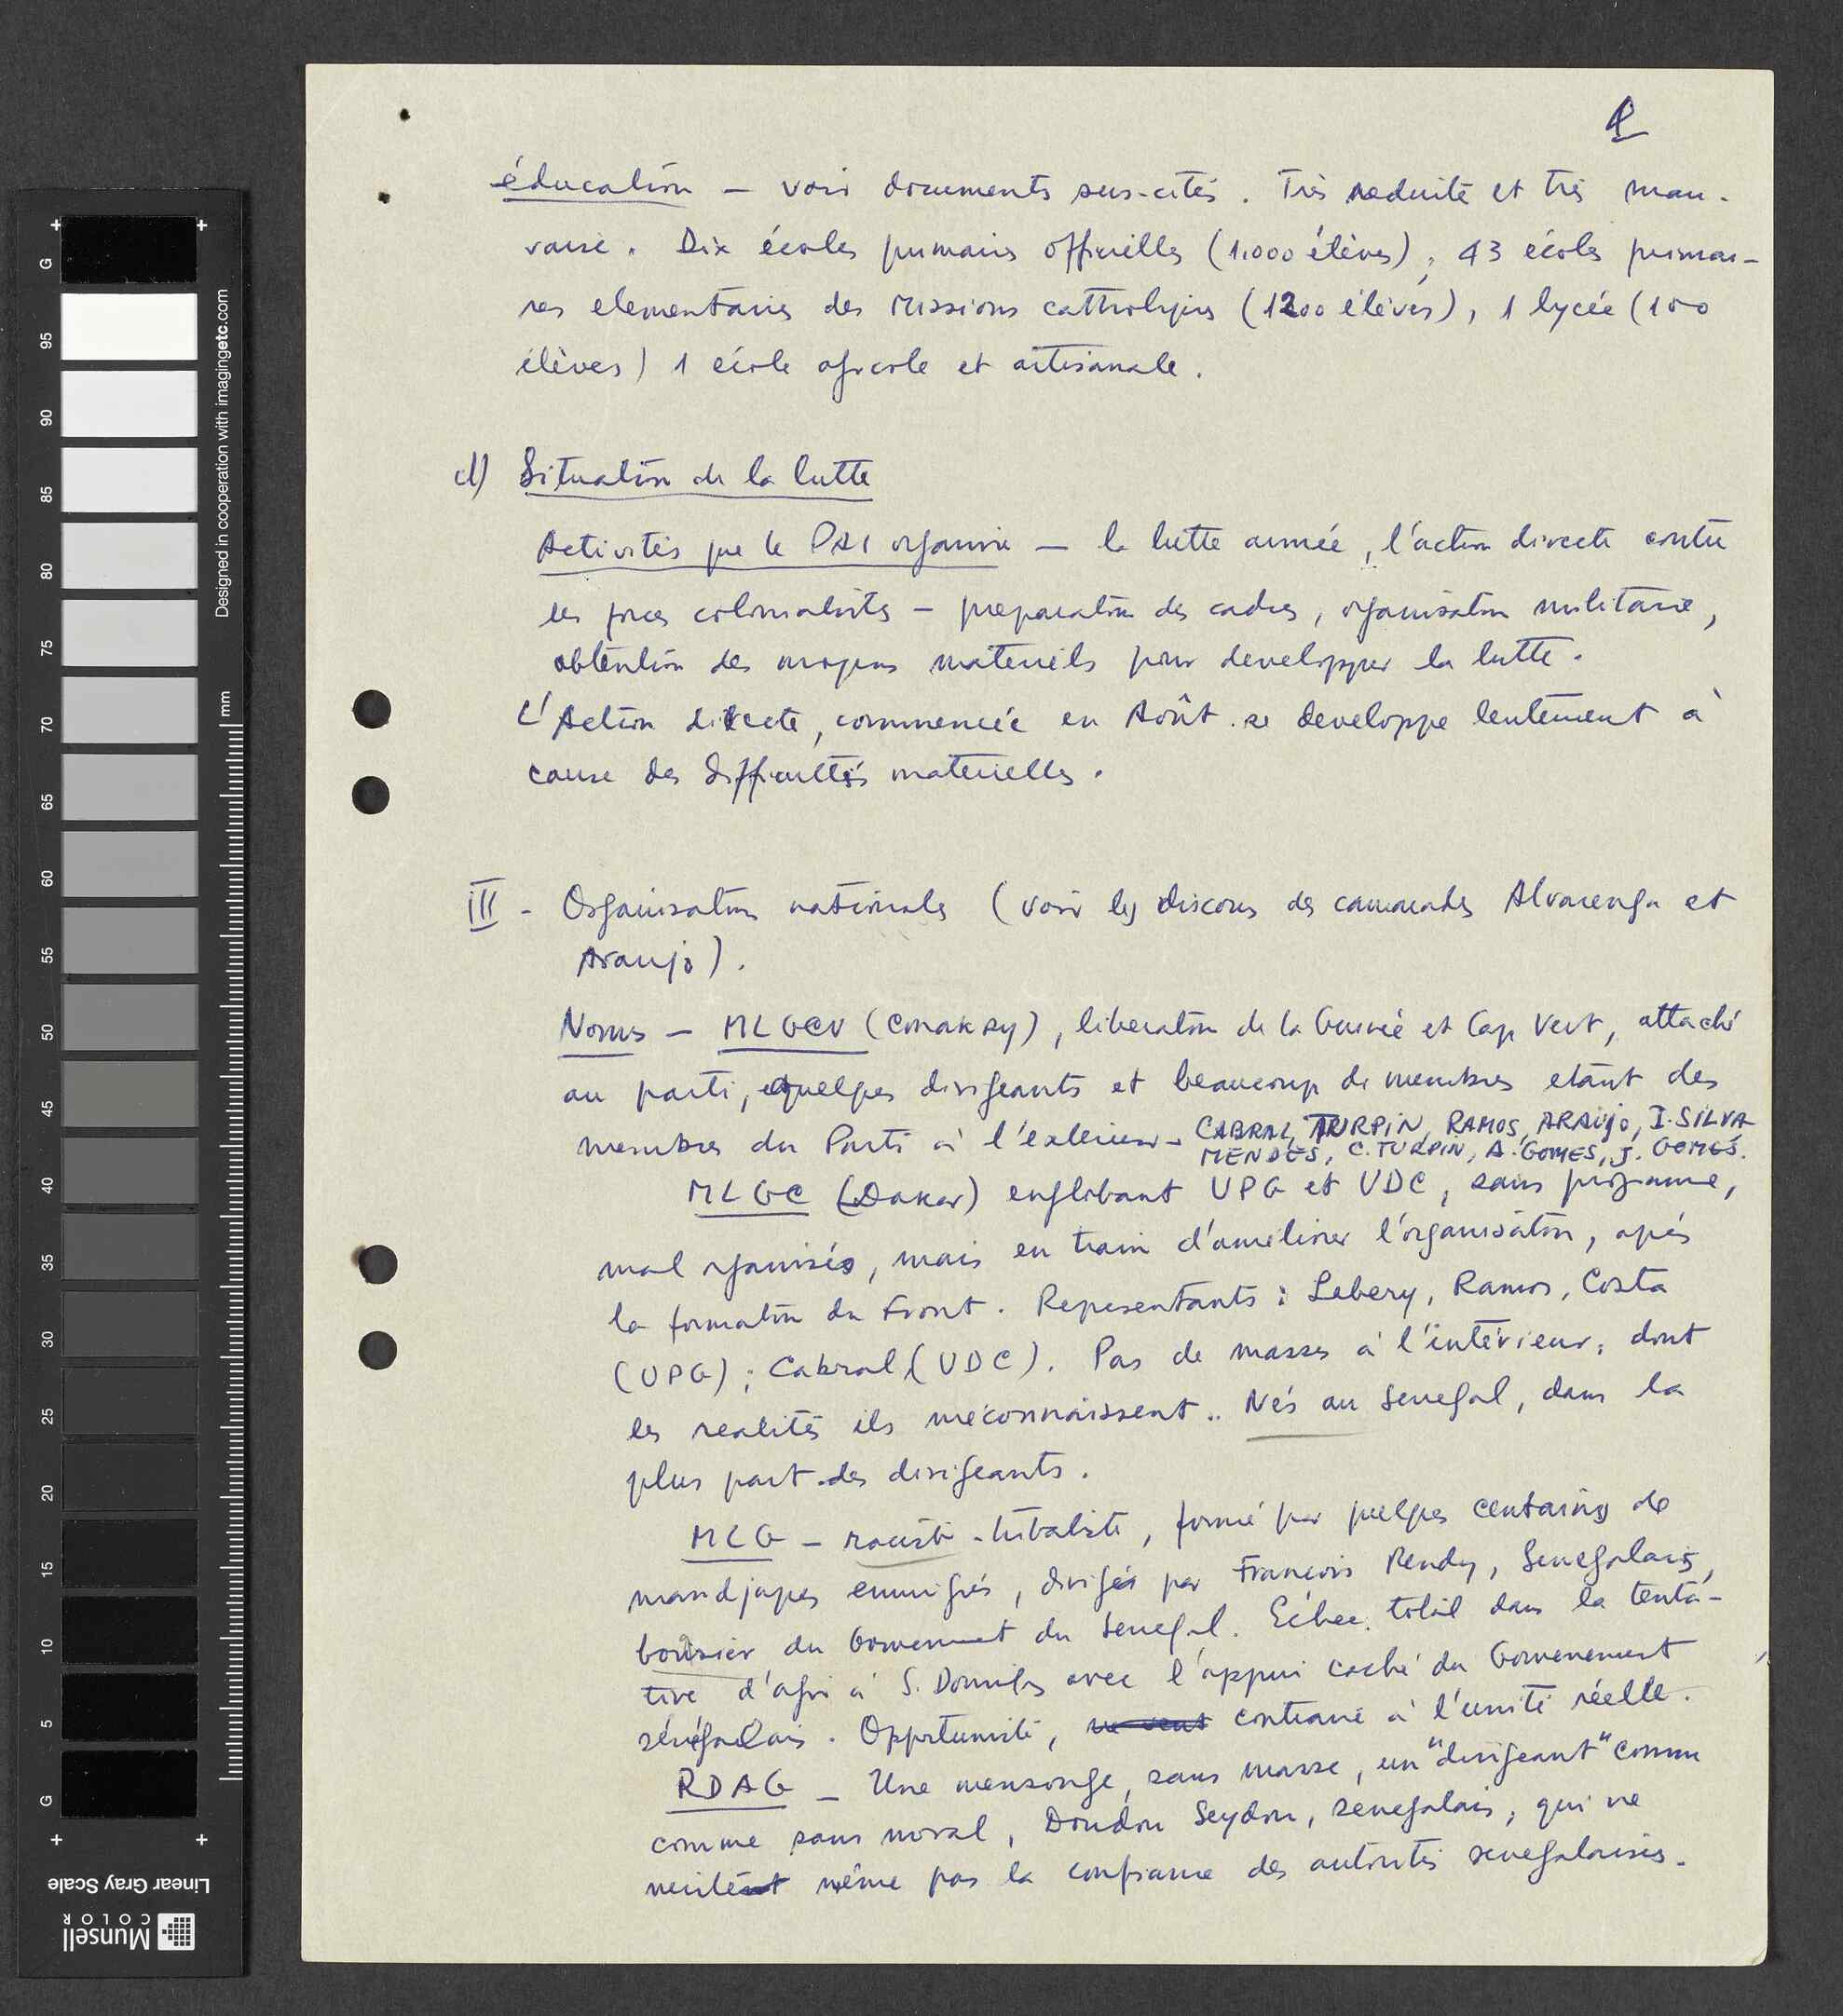 éducation – voir documents sus-cités. Très reduite et très mau-
vaise. Dix écoles primaires officielles (1.000 élèves), 43 écoles primai-
res elementaires des Missions catholiques (1200 élèves), 1 lycée (100
élèves) 1 école agricole et artisanale.
d) Situation de la lutte
Activités que le PAI organise – la lutte armée, l'action directe contre
les forces colonialistes – preparation des cadres, organisation militaire,
obtention des moyens materiels pour developper la lutte.
L'Action directe, commencée en Août se developpe lentement à
cause des difficultés materielles.
III - Organisations nationales (voir les discours des camarades Alvarenga et
Araujo).
Noms – MLGCV (Conakry), liberation de la Guinée et Cap Vert, attaché
au parti, quelques dirigeants et beaucoup de membres etant des
membres du Parti à l'exterieur - CABRAL, TURPIN, RAMOS, ARAUJO, I. SILVA
MENDES, C. TURPIN, A. GOMES, J. GOMES.
MLGC (Dakar) englobant UPG et UDC, sans programe,
mal organisés, mais en train d'ameliorer l'organisation, après
la formation du Front. Representants: Lebery, Ramos, Costa
(UPG); Cabral (UDC). Pas de masses à l'intérieur, dont
les realités ils méconnaissent.. Nés au Senegal, dans la
plus part des dirigeants.
MLG – raciste - tribaliste, formé par quelques centaines de
mandjaques emmigrés, dirigés par François Mendy, Senegalais,
boursier du Gouvernement du Senegal. Echec total dans la tenta-
tive d'agir à S. Domingos avec l'appui caché du Gouvernement
sénégalais. Opportuniste, contraire à l'unité réelle.
RDAG – Une mensonge, sans masse, un "dirigeant" comme
comme sans moral, Doudou Seydou, senegalais, qui ne
merite même pas la confiance des autorités senegalaises.
Designed in cooperation with imagingetc.com
mm
G 95 90 85 80 75 70 65 60 55 50 45 40 35 30 25 20 15 10 5 G
Linear Gray Scale
Munsell
COLOR